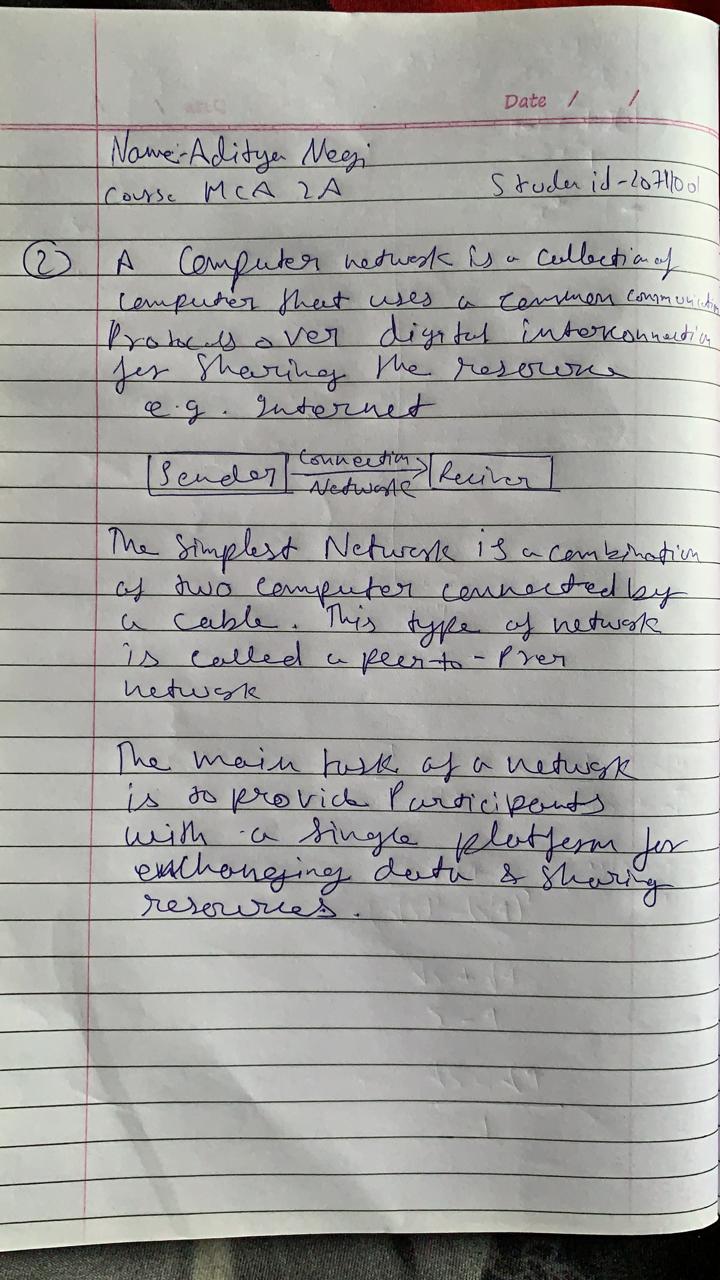 Date / /
Name:- Aditya Negi
Course MCA 2A Studen id - 2071100
② A Computer network is a collection of
computer that uses a common communication
Protocols over digital interconnection
for sharing the resource
e.g. Internet
Sender Connection Network Reciver
The simplest Network is a combination
of two computer connected by
a cable. This type of network
is called a peer-to-Peer
network
The main task of a network
is to provide Participants
with a single platform for
exchanging data & sharing
resources.